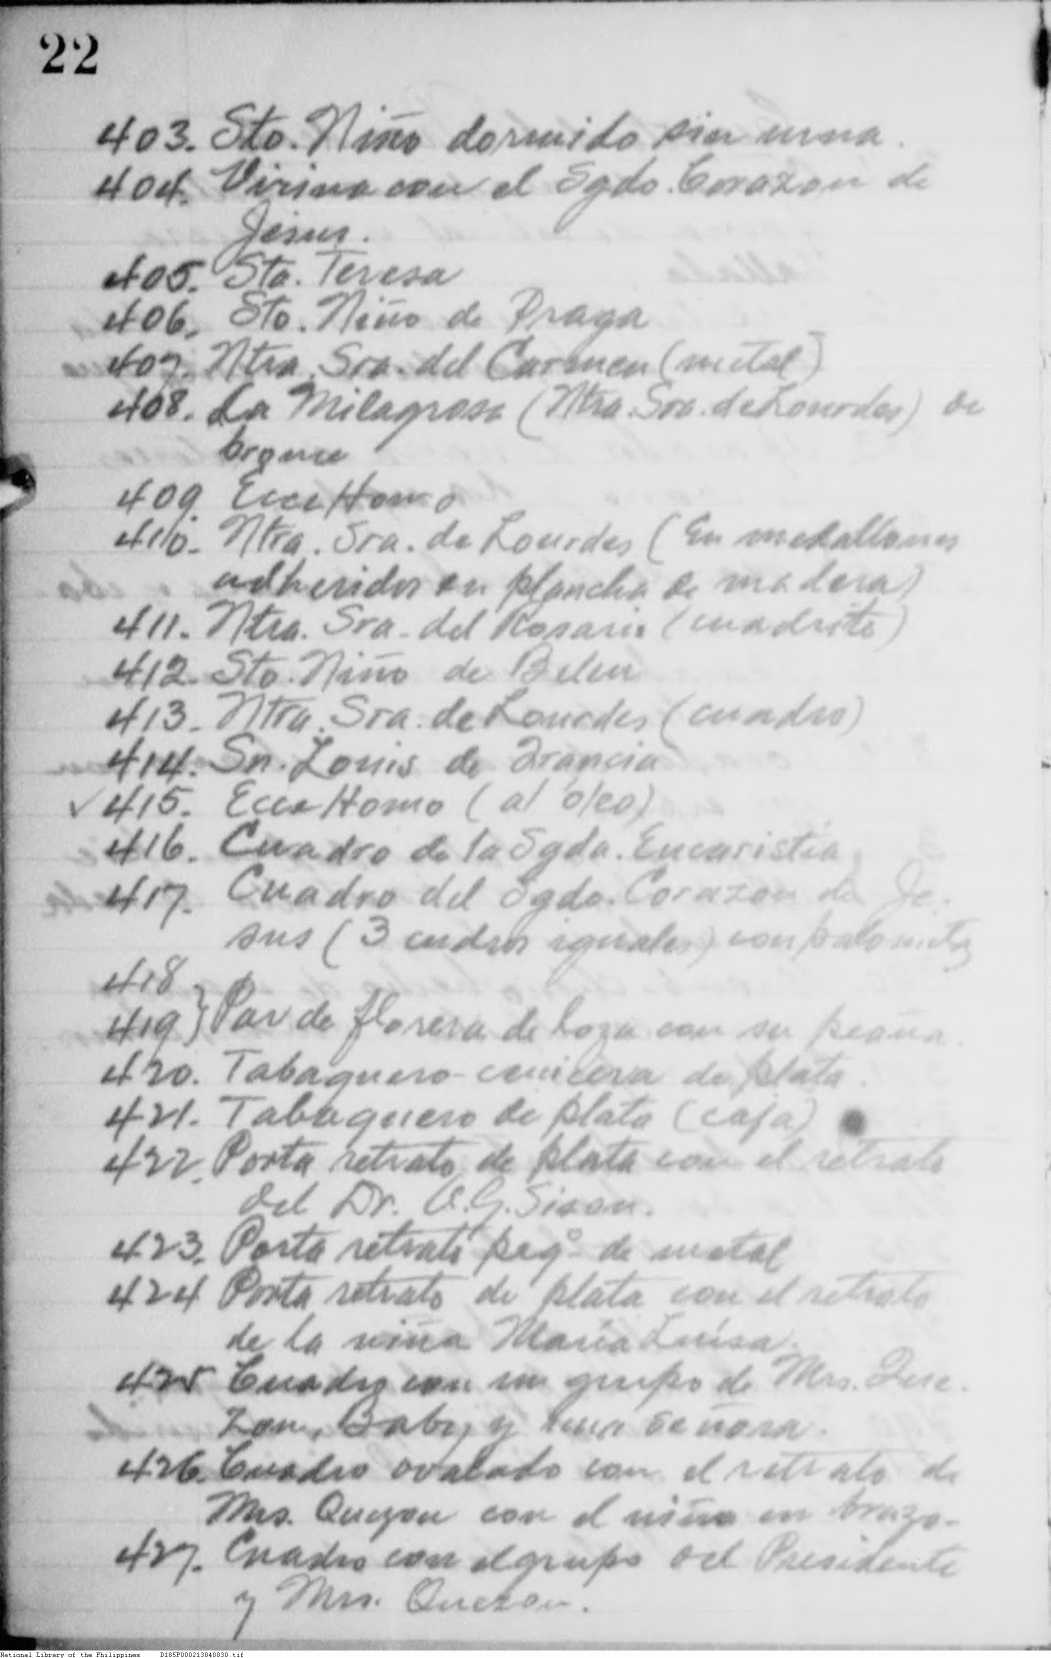 22
403. Sto. Niño dormido sin urna.
404. Virina con el Sgdo. Corazon de
Jesus.
405. Sta. Teresa
406. Sto. Niño de Praga
407. Ntra. Sra. del Carmen (metal)
408. La Milagrosa (Ntra. Sra. de Lourdes) de
bronce
409 Ecce Homo
410. Ntra. Sra. de Lourdes (En medallones
adheridos en plancha de madera)
411. Ntra. Sra. del Rosario (cuadrito)
412. Sto. Niño de Belen
413. Ntra. Sra. de Lourdes (cuadro)
414. Sn. Louis de Francia
✓ 415. Ecce Homo (al oleo)
416. Cuadro de la Sgda. Eucaristia
417. Cuadro del Sgdo. Corazon de Je-
sus (3 cudros iguales) con palomita
418
419} Par de florera de loza con su peaña.
420. Tabaquero-cenicera de plata.
421. Tabaquero de plata (caja)
422. Porta retrato de plata con el retrato
del Dr. A. G. Sison.
423. Porta retrato peqº de metal
424 Porta retrato de plata con el retrato
de la niña Maria Luisa.
425 Cuadro con un grupo de Mrs. Que-
zon, Baby y una señora.
426. Cuadro ovalado con el retrato de
Mrs. Quezon con el niño en brazo-
427. Cuadro con el grupo del Presidente
y Mrs. Quezon.
National Library of the Philippines D185P000213040830.tif